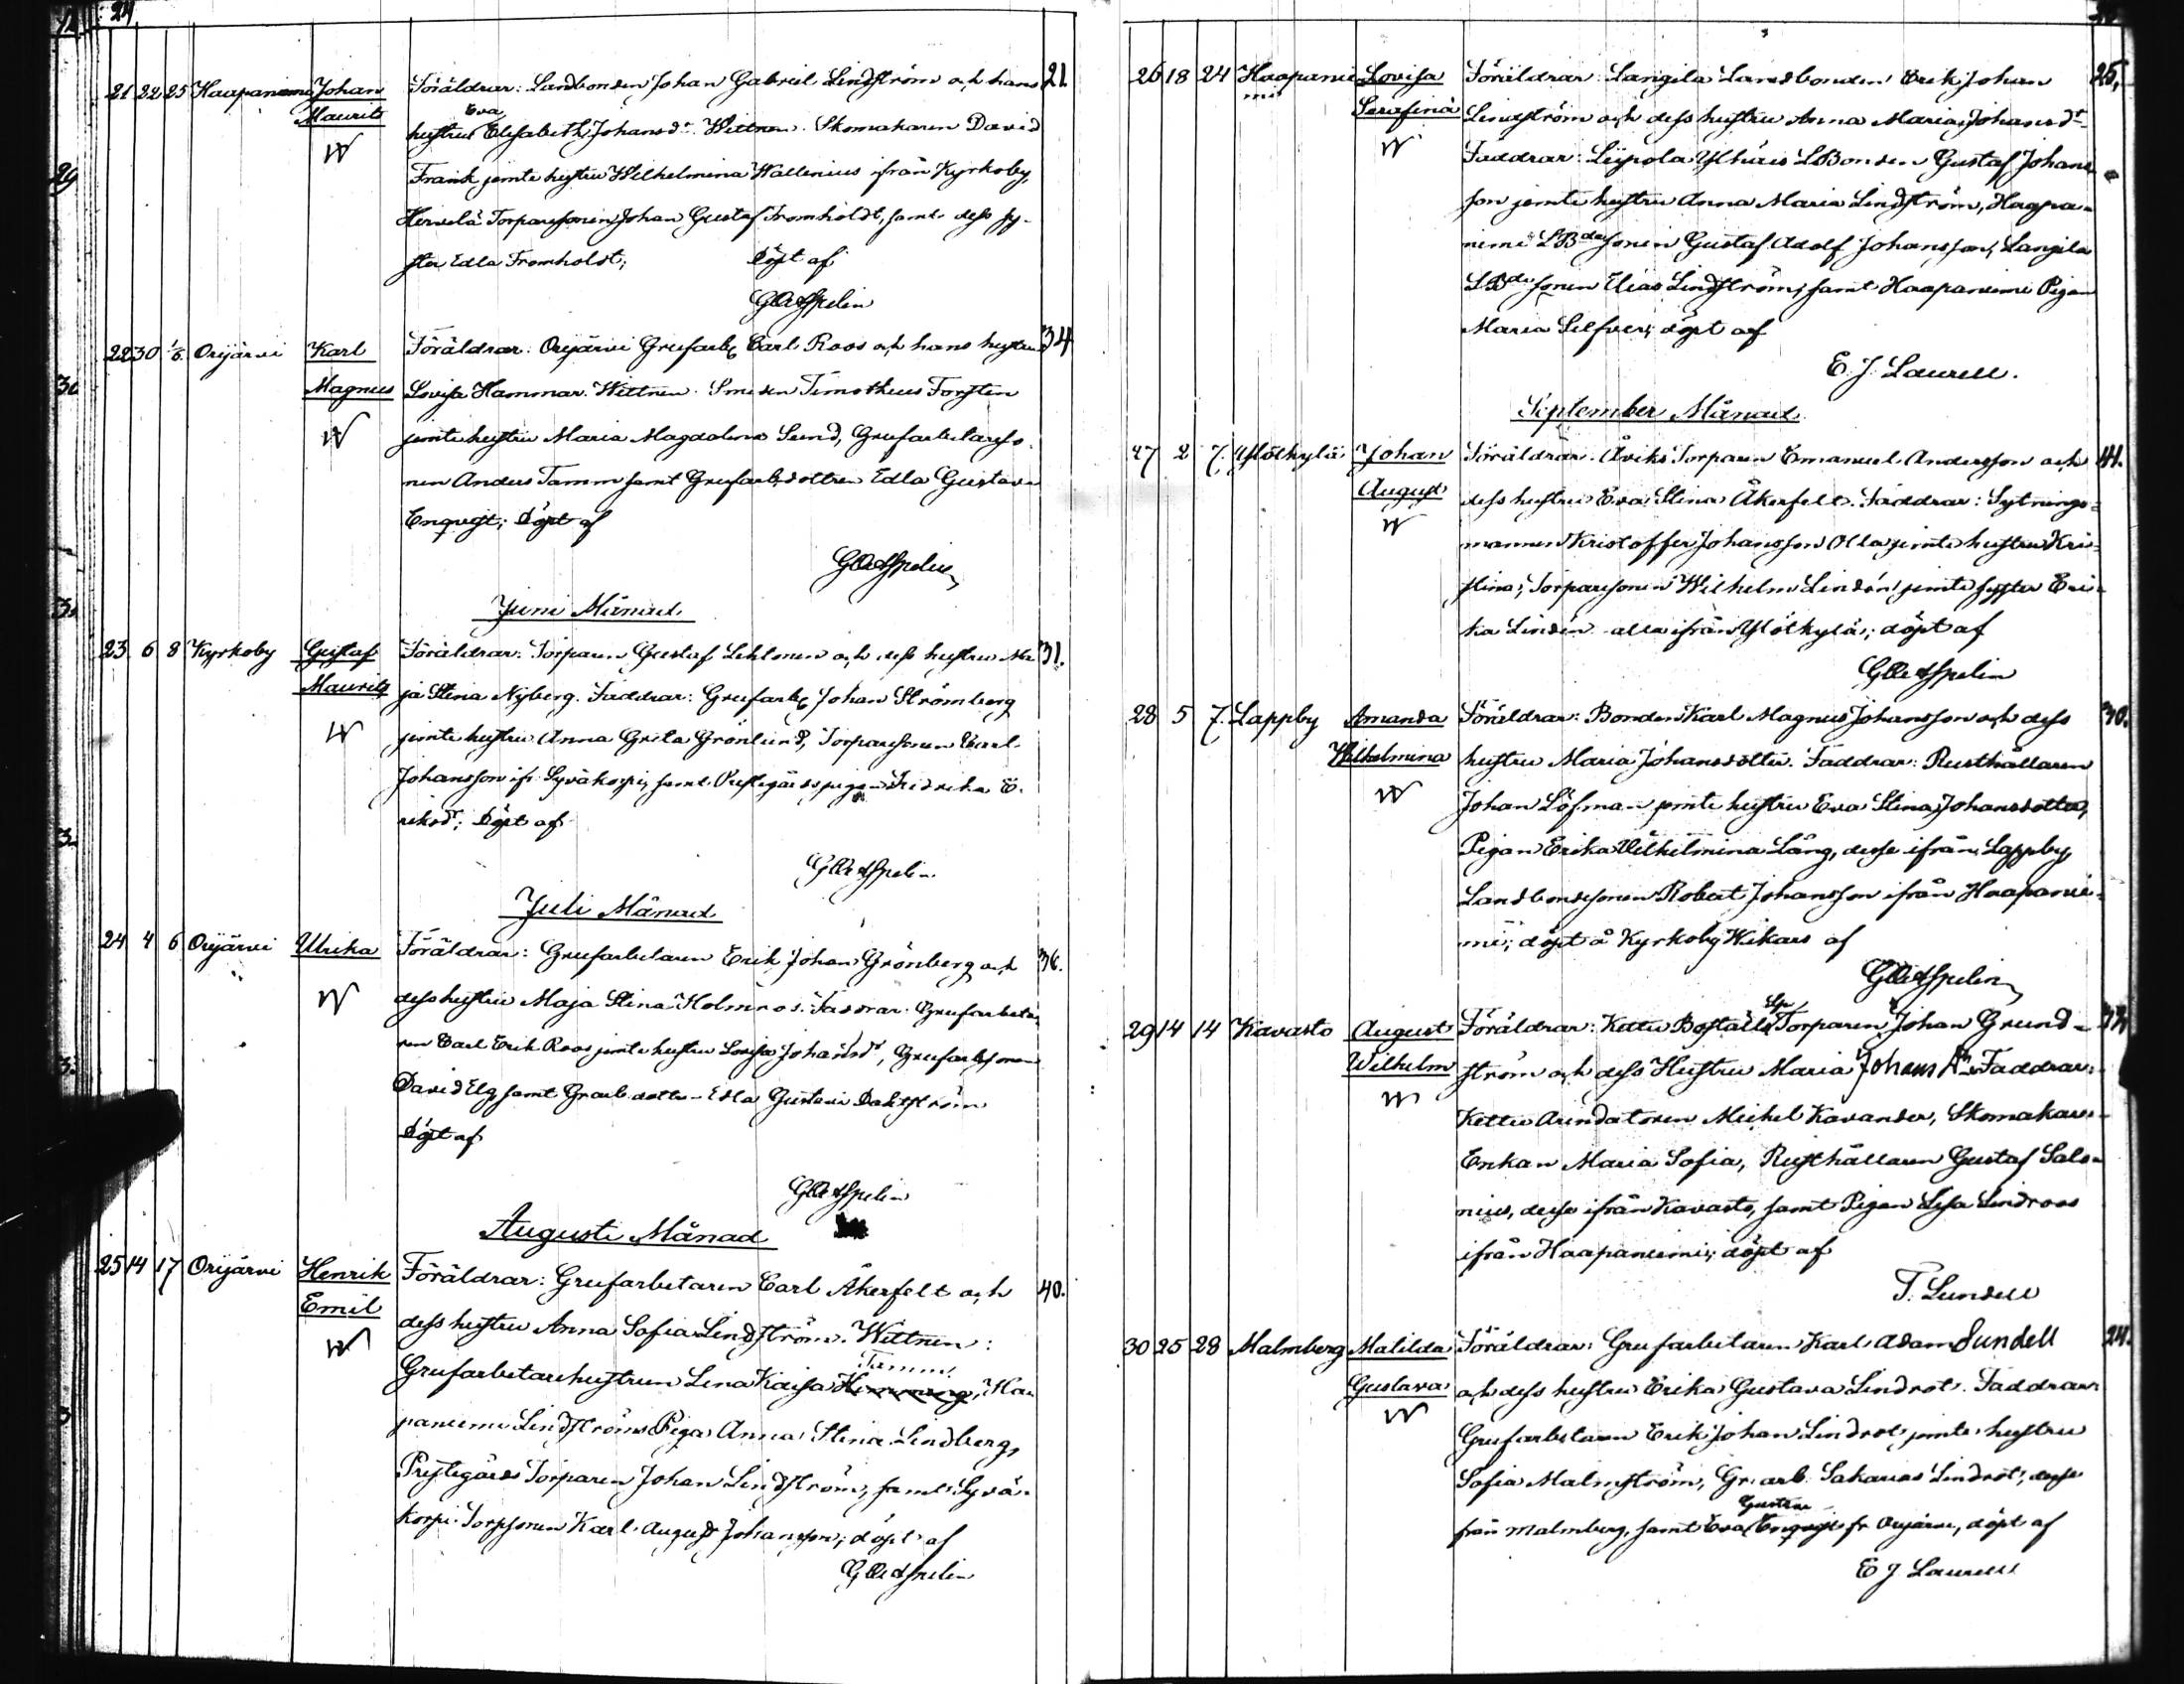 24
21 22 25 Haapaniemi Johan Föräldrar: Landbonden Johan Gabriel Lindström och hans 21.
Maurits hustru Eva Elisabeth Johansdr. Wittnen. Skomakaren David
Frank jemte hustru Wilhelmina Wallenius ifrån Kyrkoby,
Hervelä Torparesonen Johan Gustaf Fromholdt, samt dess sy-
ster Edla Fromholdt; Döpt af
22 30 1/6 Orijärvi Karl Föräldrar: Orijärvi Grufarb. Carl Roos och hans hustru 34
Magnus Lovisa Hammar. Wittnen. Smeden Timotheus Forsten
jemte hustru Maria Magdalena Sund, Grufarbetareso-
nen Anders Tamm samt Grufarb.dottren Edla Gustava
Enqvist; Döpt af
Juni Månad.
23 6 8 Kyrkoby Gustaf Föräldrar: Torparen Gustaf Lehtonen och dess hustru Ma 31.
Maurits ja Stina Nyberg. Faddrar: Grufarb. Johan Strömberg
jemte hustru Anna Greta Grönlund, Torparesonen Carl
Johansson ifr. Syväkorpi, samt Prestgårdspigan Fredrika E-
riksdr; Döpt af
Juli Månad
24 4 6 Orijärvi Ulrika Föräldrar: Grufarbetaren Erik Johan Grönberg och 36.
dess hustru Maja Stina Holmroos. Faddrar: Grufarbeta-
ren Carl Erik Roos jemte hustru Lovisa Johansdr, Grufarb.sonen
David Elg samt Gr.arb.dottr. Edla Gustava Dahlström
Döpt af
Augusti Månad
25 14 17 Orijärvi Henrik Föräldrar: Grufarbetaren Carl Åkerfelt och 40.
Emil dess hustru Anna Sofia Lindström. Wittnen:
Grufarbetarehustrun Lena Kaisa Tamm, Haa
paniemi Lindströms Piga Anna Stina Lindberg,
Prestegårds Torparen Johan Lindström, samt Syvä-
korpi Torpsonen Karl August Johansson; döpt af
26 18 24 Haapanie Lovisa Föräldrar: Langila Landbonden Erik Johan 25.
mi Serafina Lindström och dess hustru Anna Maria Johansdr
Faddrar: Leipola Ylhäis LBonden Gustaf Johans-
son jemte hustru Anna Maria Lindström, Haapa-
niemi LBdesonen Gustaf Adolf Johansson, Langila
LBdesonen Elias Lindström, samt Haapaniemi Pigan
Maria Selfver; döpt af
E. J. Laurell.
September Månad
27 2 7. Yliskylä Johan Föräldrar: Åviks Torparen Emanuel Andersson och 44.
August dess hustru Eva Stina Åkerfelt. Faddrar: Sytnings-
mannen Kristoffer Johansson Olla jemte hustru Kri-
stina; Torparesonen Wilhelm Lindén jemte syster Eri-
ka Lindén alla ifrån Yliskylä; döpt af
28 5 7. Lappby Amanda Föräldrar: Bonden Karl Magnus Johansson och dess 30.
Wilhelmina hustru Maria Johansdotter. Faddrar: Rusthållaren
Johan Löfman jemte hustru Eva Stina Johansdotter,
Pigan Erika Wilhelmina Lång, desse ifrån Lappby,
Landbondesonen Robert Johansson ifrån Haapanie-
mi; döpt å Kyrkoby Wikars af
29 14 14 Kavasto August Föräldrar: Kettu Boställs Torparen Johan Grund-
Wilhelm ström och dess Hustru Maria Johansdr. Faddrar:
Kettu Arendatoren Mickel Kavander, Skomakare-
Enkan Maria Sofia, Rusthållaren Gustaf Salo-
nius, desse ifrån Kavasto, samt Pigan Lisa Lindroos
ifrån Haapaniemi; döpt af
T. Lundell
30 25 28 Malmberg Matilda Föräldrar: Grufarbetaren Karl Adam Sundell 24.
Gustava och dess hustru Erika Gustava Lindrot. Faddrar:
Grufarbetaren Erik Johan Lindrot jemte hustru
Sofia Malmström, Gr.arb. Sakarias Lindrot, desse
från Malmberg, samt Eva Gustava Enqvist fr Orijärvi, döpt af
E J Laurell